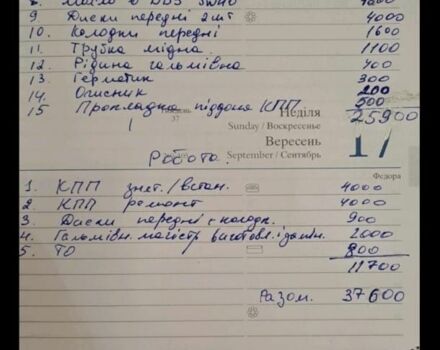 8. Масло в ДВЗ 5W40
9 Диски передні 2шт 4000
10. Колодки передні 1600
11. Трубка мідна 1100
12. Рідина гальмівна 400
13. Герметик 300
14. Очисник 200
15 Прокладка піддона КПП 500
25900
Тиждень
37
Неділя
Sunday / Воскресенье
Вересень
September / Сентябрь
17
Робота.
Федора
1. КПП знят./встан. 4000
2 КПП ремонт 4000
3. Диски передні + колодк. 900
4. Гальмівн. магістр виготовл. і замін. 2000
5. ТО 800
11700
Разом. 37600